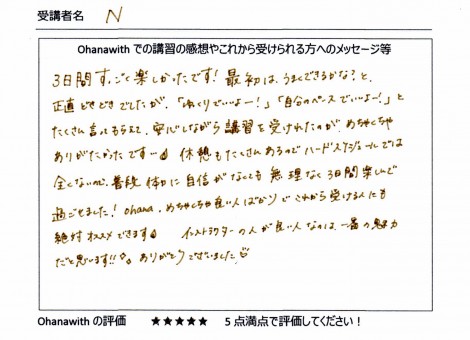 受講者名 N
Ohanawith での講習の感想やこれから受けられる方へのメッセージ等
3日間すっごく楽しかったです！最初は、うまくできるかな？と、
正直どきどきでしたが、「ゆっくりでいいよー！」「自分のペースでいいよー！」と
たくさん言ってもらえて、安心しながら講習を受けれたのが、めちゃくちゃ
ありがたかったです 休憩もたくさんあるのでハードスケジュールでは
全くないので、普段 体力に自信がなくても 無理なく3日間楽しんで
過ごせました！ohana、めちゃくちゃ良い人ばかりで これから受ける人にも
絶対オススメできます インストラクターの人が良い人なのは 一番の魅力
だと思います!! ありがとうございました
Ohanawith の評価 ★★★★★ 5 点満点で評価してください！